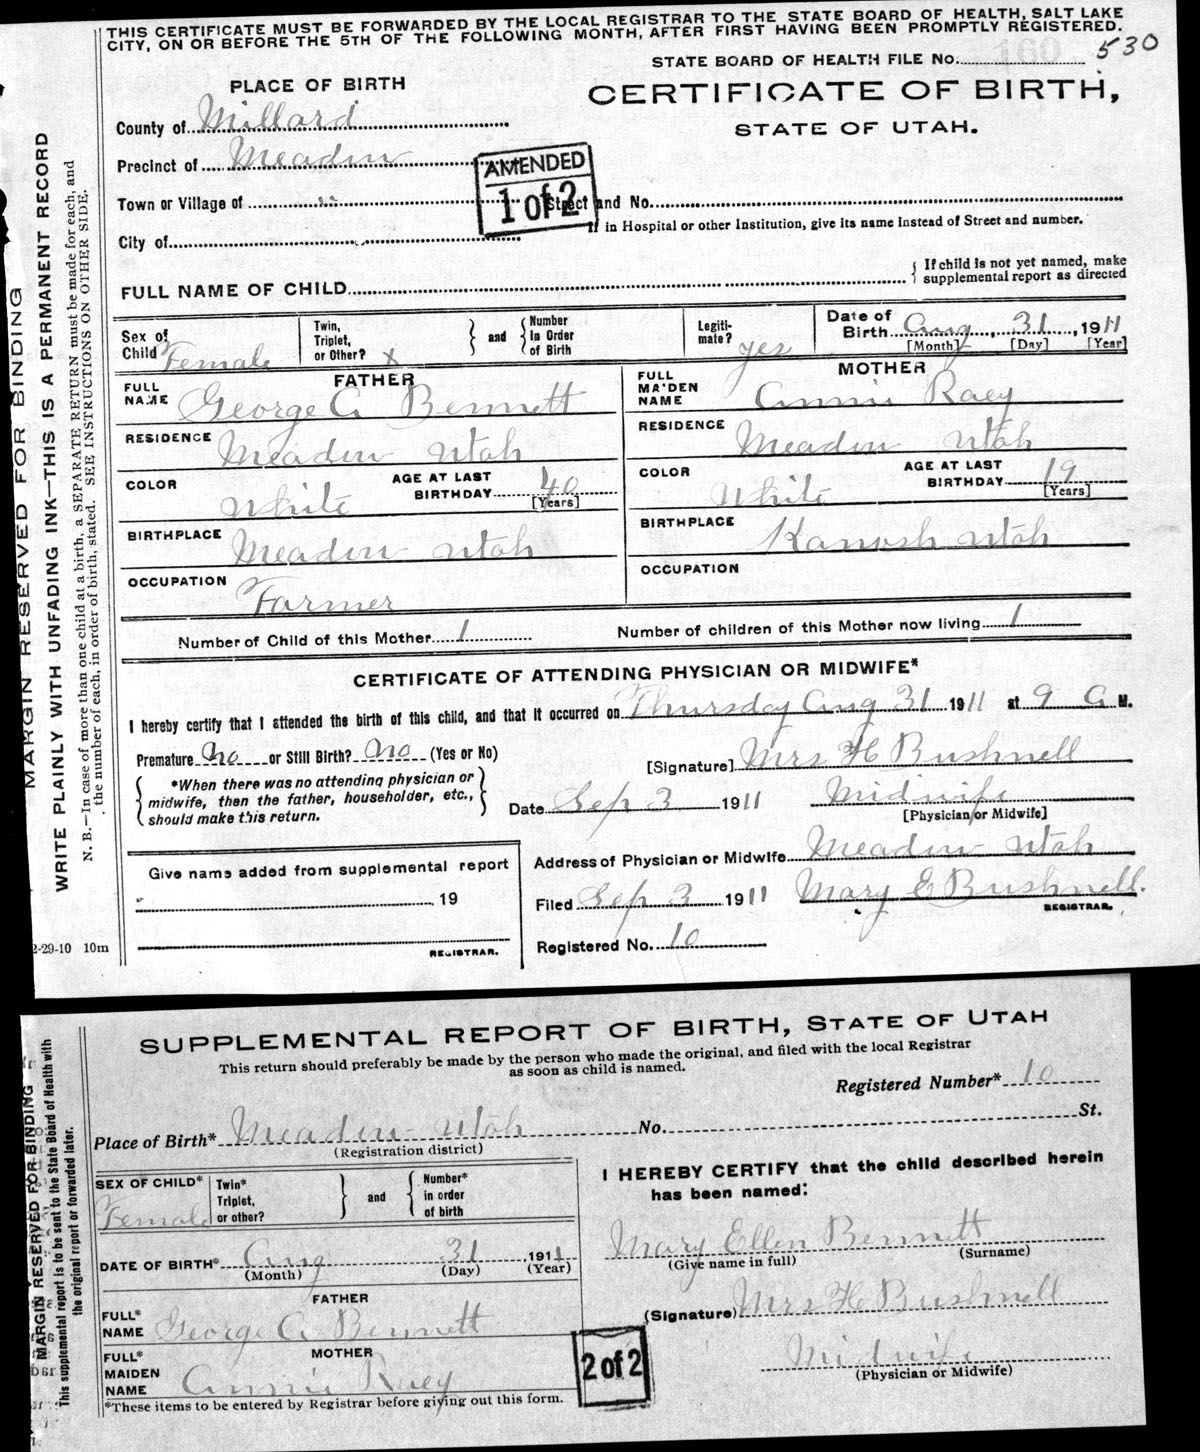 THIS CERTIFICATE MUST BE FORWARDED BY THE LOCAL REGISTRAR TO THE STATE BOARD OF HEALTH, SALT LAKE
CITY, ON OR BEFORE THE 5TH OF THE FOLLOWING MONTH, AFTER FIRST HAVING BEEN PROMPTLY REGISTERED.
STATE BOARD OF HEALTH FILE No. 530
PLACE OF BIRTH
CERTIFICATE OF BIRTH,
STATE OF UTAH.
County of Millard
Precinct of Meadow
AMENDED
1 of 2
Town or Village of "
Street and No.
If in Hospital or other Institution, give its name Instead of Street and number.
City of
FULL NAME OF CHILD
If child is not yet named, make
supplemental report as directed
Sex of Child Female
Twin, Triplet, or Other? x
and
Number In Order of Birth
Legiti-mate? yes
Date of Birth Aug 31, 1911
[Month] [Day] [Year]
FATHER
FULL NAME George A Bennett
MOTHER
FULL MAIDEN NAME Annie Raey
RESIDENCE Meadow Utah
RESIDENCE Meadow Utah
COLOR White
AGE AT LAST BIRTHDAY 40 [Years]
COLOR White
AGE AT LAST BIRTHDAY 19 [Years]
BIRTHPLACE Meadow Utah
BIRTHPLACE Kanosh Utah
OCCUPATION Farmer
OCCUPATION
Number of Child of this Mother 1
Number of children of this Mother now living 1
CERTIFICATE OF ATTENDING PHYSICIAN OR MIDWIFE*
I hereby certify that I attended the birth of this child, and that it occurred on Thursday Aug 31 1911 at 9 A M.
Premature No or Still Birth? No (Yes or No)
[Signature] Mrs H Bushnell
*When there was no attending physician or
midwife, then the father, householder, etc.,
should make this return.
Date Sep 3 1911
Midwife
[Physician or Midwife]
Give name added from supplemental report
19
REGISTRAR.
Address of Physician or Midwife Meadow Utah
Filed Sep 3 1911 Mary E Bushnell.
REGISTRAR.
Registered No. 10
2-29-10 10m
MARGIN RESERVED FOR BINDING
WRITE PLAINLY WITH UNFADING INK—THIS IS A PERMANENT RECORD
N. B.—In case of more than one child at a birth, a SEPARATE RETURN must be made for each, and
the number of each, in order of birth, stated. SEE INSTRUCTIONS ON OTHER SIDE.
SUPPLEMENTAL REPORT OF BIRTH, STATE OF UTAH
This return should preferably be made by the person who made the original, and filed with the local Registrar
as soon as child is named.
Registered Number* 10
Place of Birth* Meadow Utah No. St.
(Registration district)
SEX OF CHILD* Female
Twin* Triplet, or other?
and
Number* in order of birth
DATE OF BIRTH* Aug 31 1911
(Month) (Day) (Year)
FATHER
FULL* NAME George A Bennett
MOTHER
FULL* MAIDEN NAME Annie Raey
*These items to be entered by Registrar before giving out this form.
I HEREBY CERTIFY that the child described herein
has been named:
Mary Ellen Bennett
(Give name in full) (Surname)
(Signature) Mrs H Bushnell
2 of 2
Midwife
(Physician or Midwife)
MARGIN RESERVED FOR BINDING
This supplemental report is to be sent to the State Board of Health with
the original report or forwarded later.